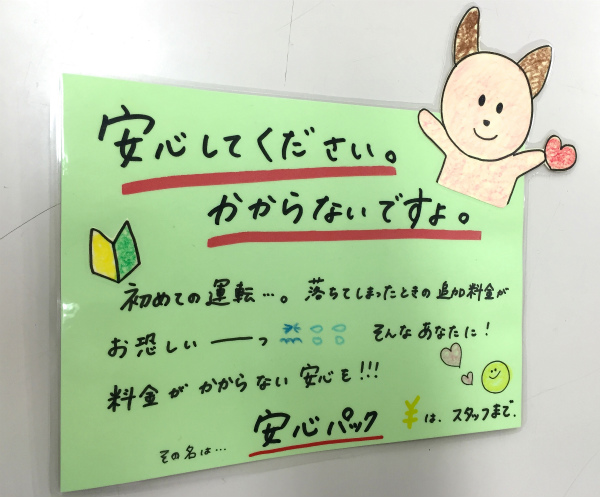 安心してください。
かからないですよ。
初めての運転…。落ちてしまったときの追加料金が
お恐しいーーっ そんなあなたに!
料金がかからない安心を!!!
その名は… 安心パック ¥は、スタッフまで.